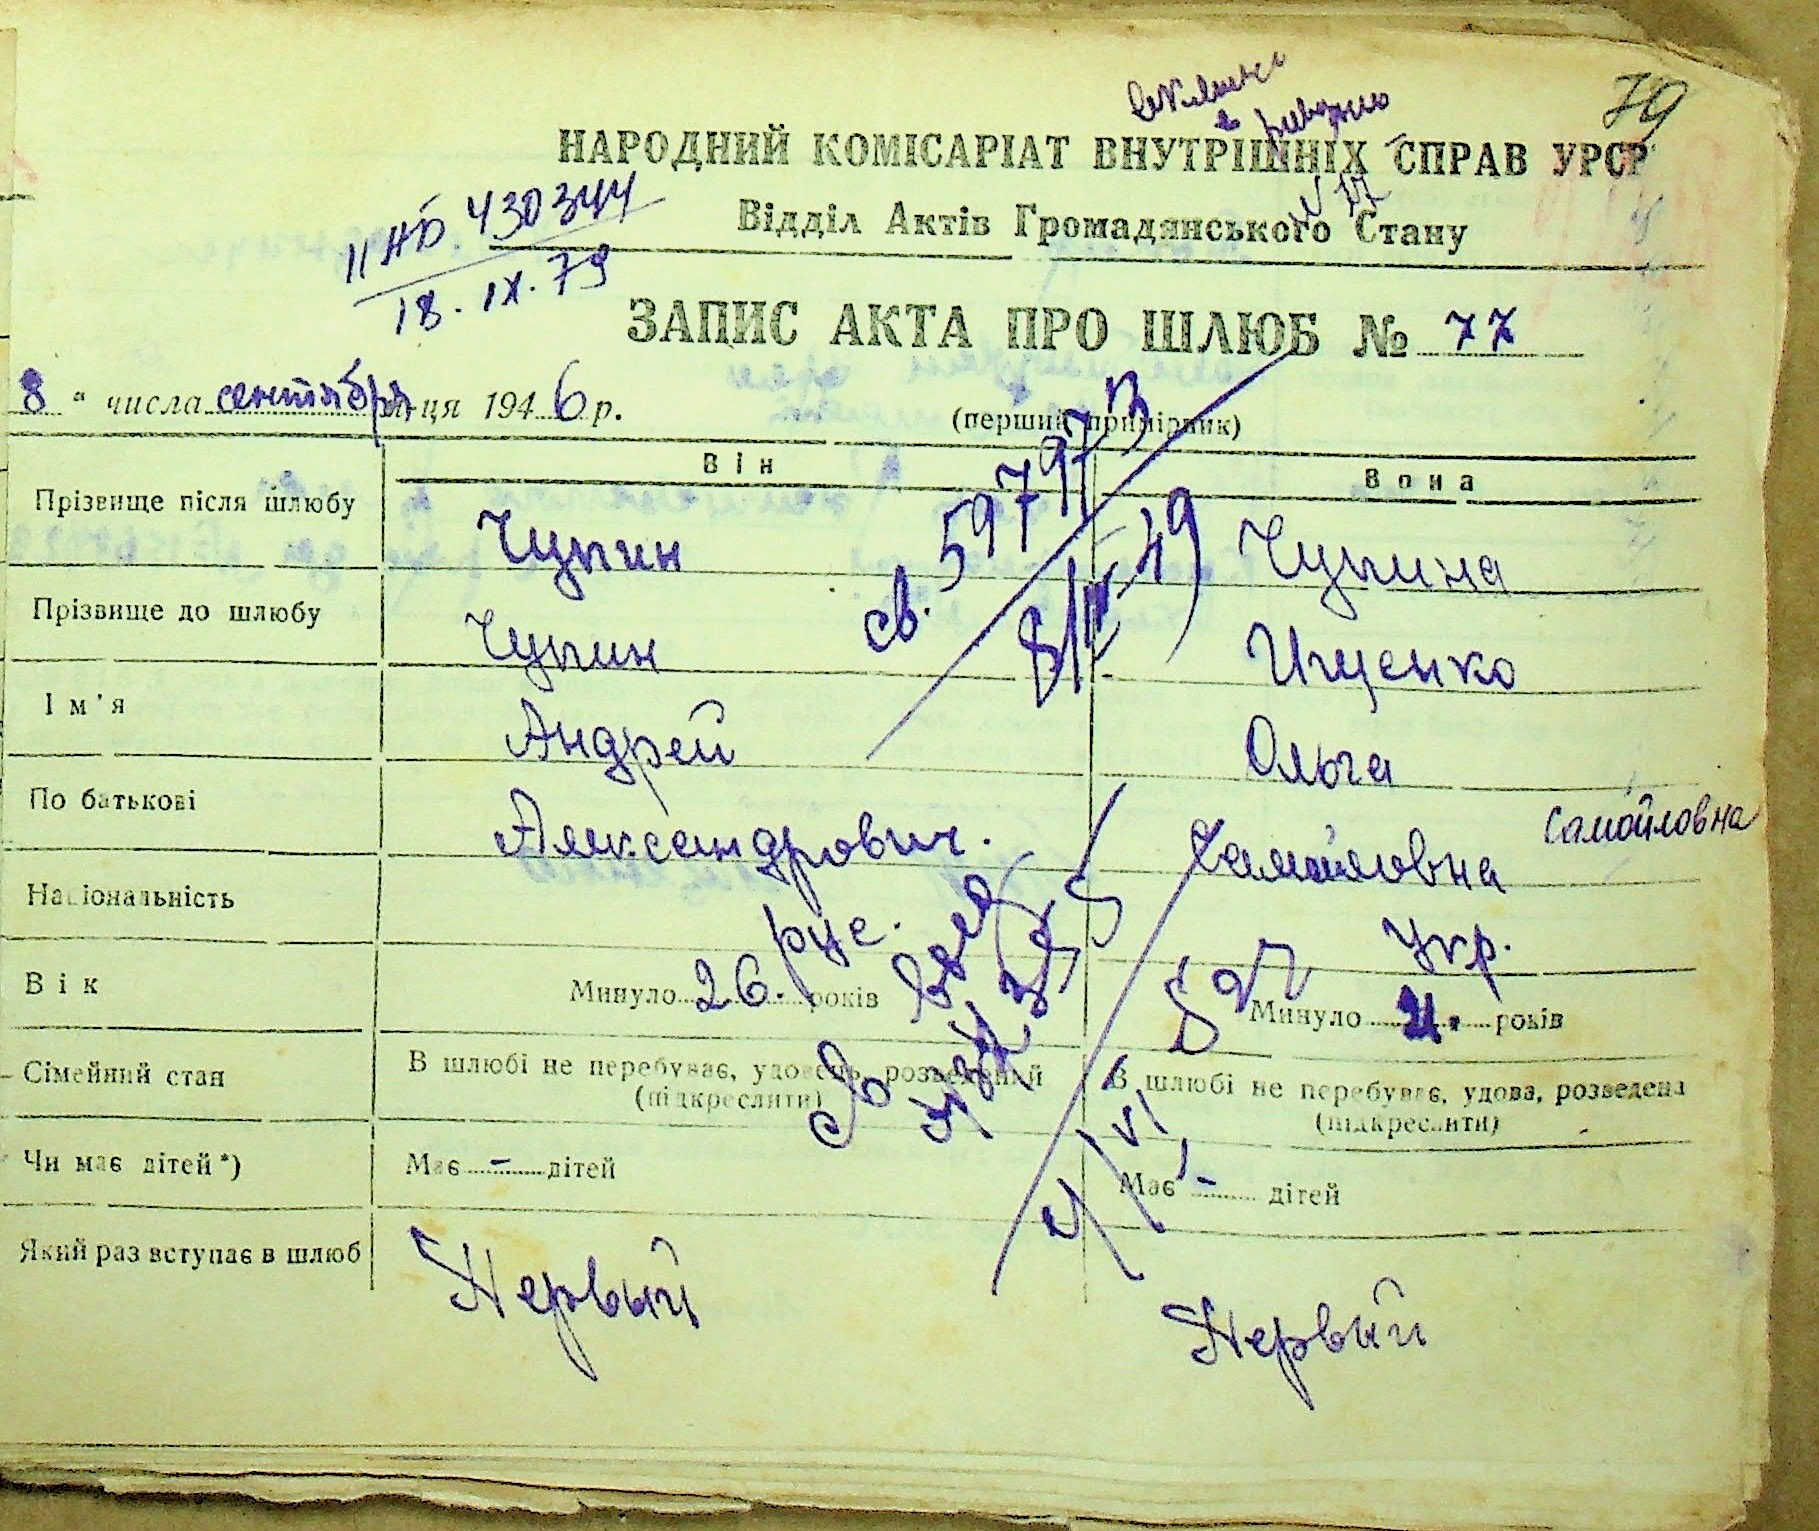 79
НАРОДНИЙ КОМІСАРІАТ ВНУТРІШНІХ СПРАВ УРСР
II НБ 430344
18. IX. 79
Відділ Актів Громадянського Стану
ЗАПИС АКТА ПРО ШЛЮБ № 77
8 " числа сентября ця 1946 р.
(перший примірник)
Він Вона
Прізвище після шлюбу Чупин Чупина
св. 597973
8/III-49
Прізвище до шлюбу Чупин Ищенко
Ім'я Андрей Ольга
По батькові Александрович. Самойловна Самойловна
Національність рус. Укр.
Вік Минуло 26. років Минуло 21. років
Сімейний стан В шлюбі не перебуває, удовець, розведений В шлюбі не перебуває, удова, розведена
(підкреслити) (підкреслити)
Чи має дітей*) Має - дітей Має - дітей
Який раз вступає в шлюб Первый Первый